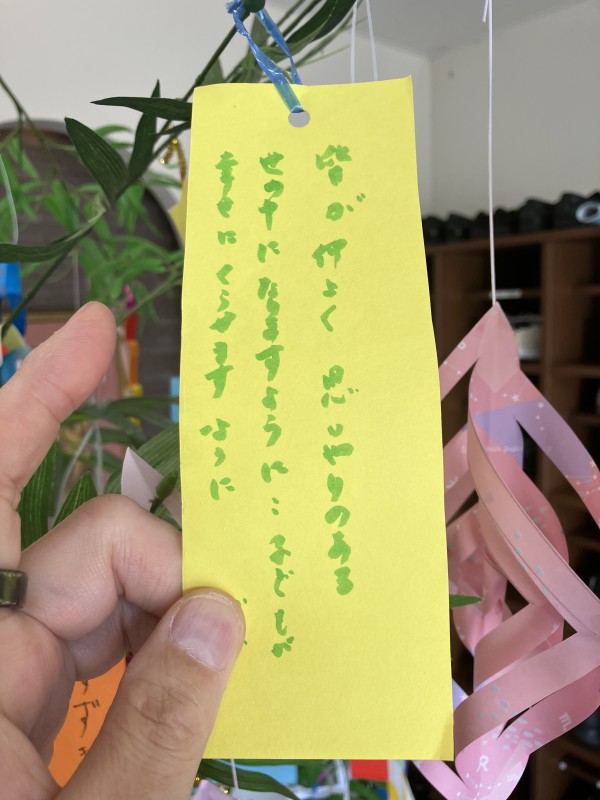 皆が仲よく 思いやりのある
せの中に なりますように‥子どもが
幸せに くらせます ように